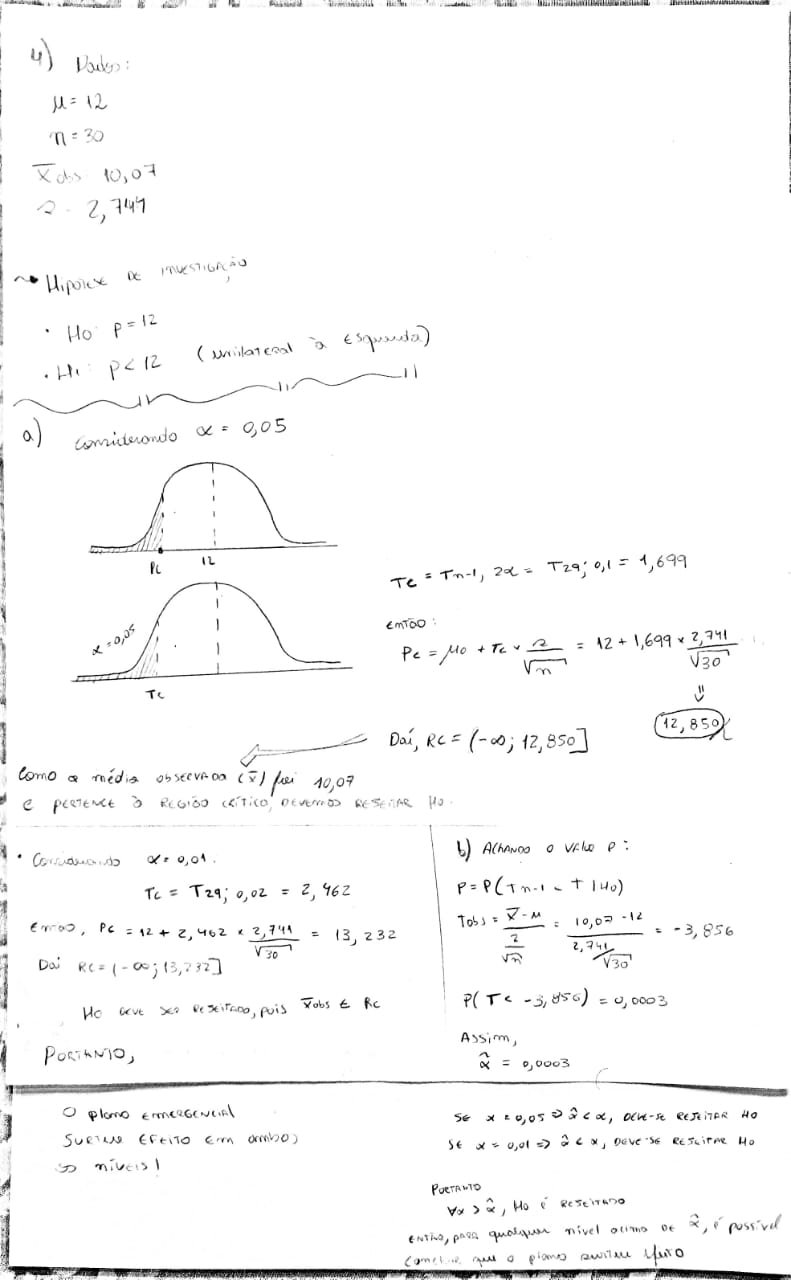 4) Dados:
μ = 12
n = 30
X̅obs 10,07
s = 2,741
~• Hipótese de investigação
• Ho: p = 12
• H1: p < 12 (unilateral à esquerda)
a) Considerando α = 0,05
Pc 12
α = 0,05
Tc
Tc = Tn-1, 2α = T29; 0,1 = 1,699
Então:
Pc = μo + Tc × s/√n = 12 + 1,699 × 2,741/√30
⇓
12,850
Daí, RC = (-∞; 12,850]
Como a média observada (x̅) foi 10,07
e pertence à região crítico, devemos rejeitar Ho.
• Considerando α = 0,01.
Tc = T29; 0,02 = 2,462
Então, Pc = 12 + 2,462 × 2,741/√30 = 13,232
Daí RC = (-∞; 13,232]
Ho deve ser rejeitado, pois X̅obs ∈ Rc
Portanto,
O plano emergencial
surtiu efeito em ambos
os níveis!
b) Achando o valor p:
P = P(Tn-1 < t | Ho)
Tobs = (X̅ - μ)/(s/√n) = (10,07 - 12)/(2,741/√30) = -3,856
P(T < -3,856) = 0,0003
Assim,
α̂ = 0,0003
Se α = 0,05 ⇒ α̂ < α, deve-se rejeitar Ho
Se α = 0,01 ⇒ α̂ < α, deve-se rejeitar Ho
Portanto
∀α > α̂, Ho é rejeitado
Então, para qualquer nível acima de α̂, é possível
concluir que o plano surtiu efeito